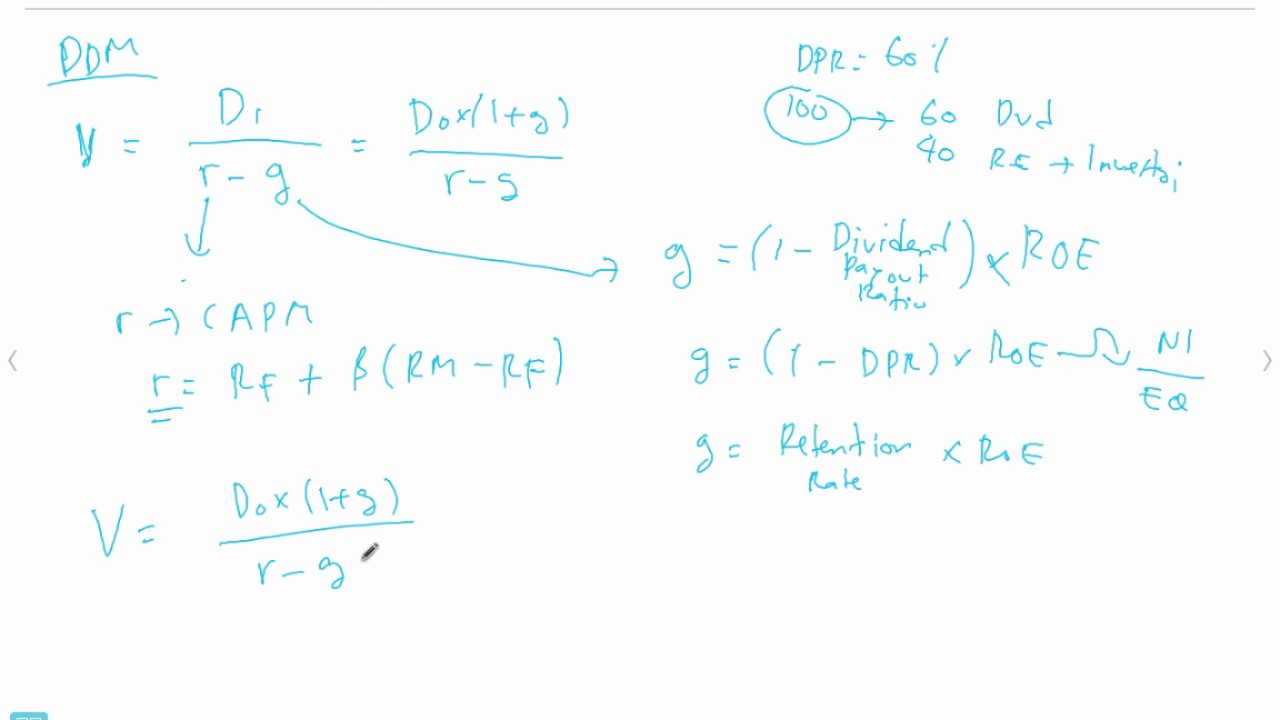 DDM
V = D1 / (r - g) = Do x (1+g) / (r - g)
r → CAPM
r = RF + β (RM - RF)
V = Do x (1+g) / (r - g)
DPR = 60%
100 → 60 Dvd
40 RE →
g = (1 - Dividend Payout Ratio) x ROE
g = (1 - DPR) x ROE → NI / EQ
g = Retention Rate x ROE